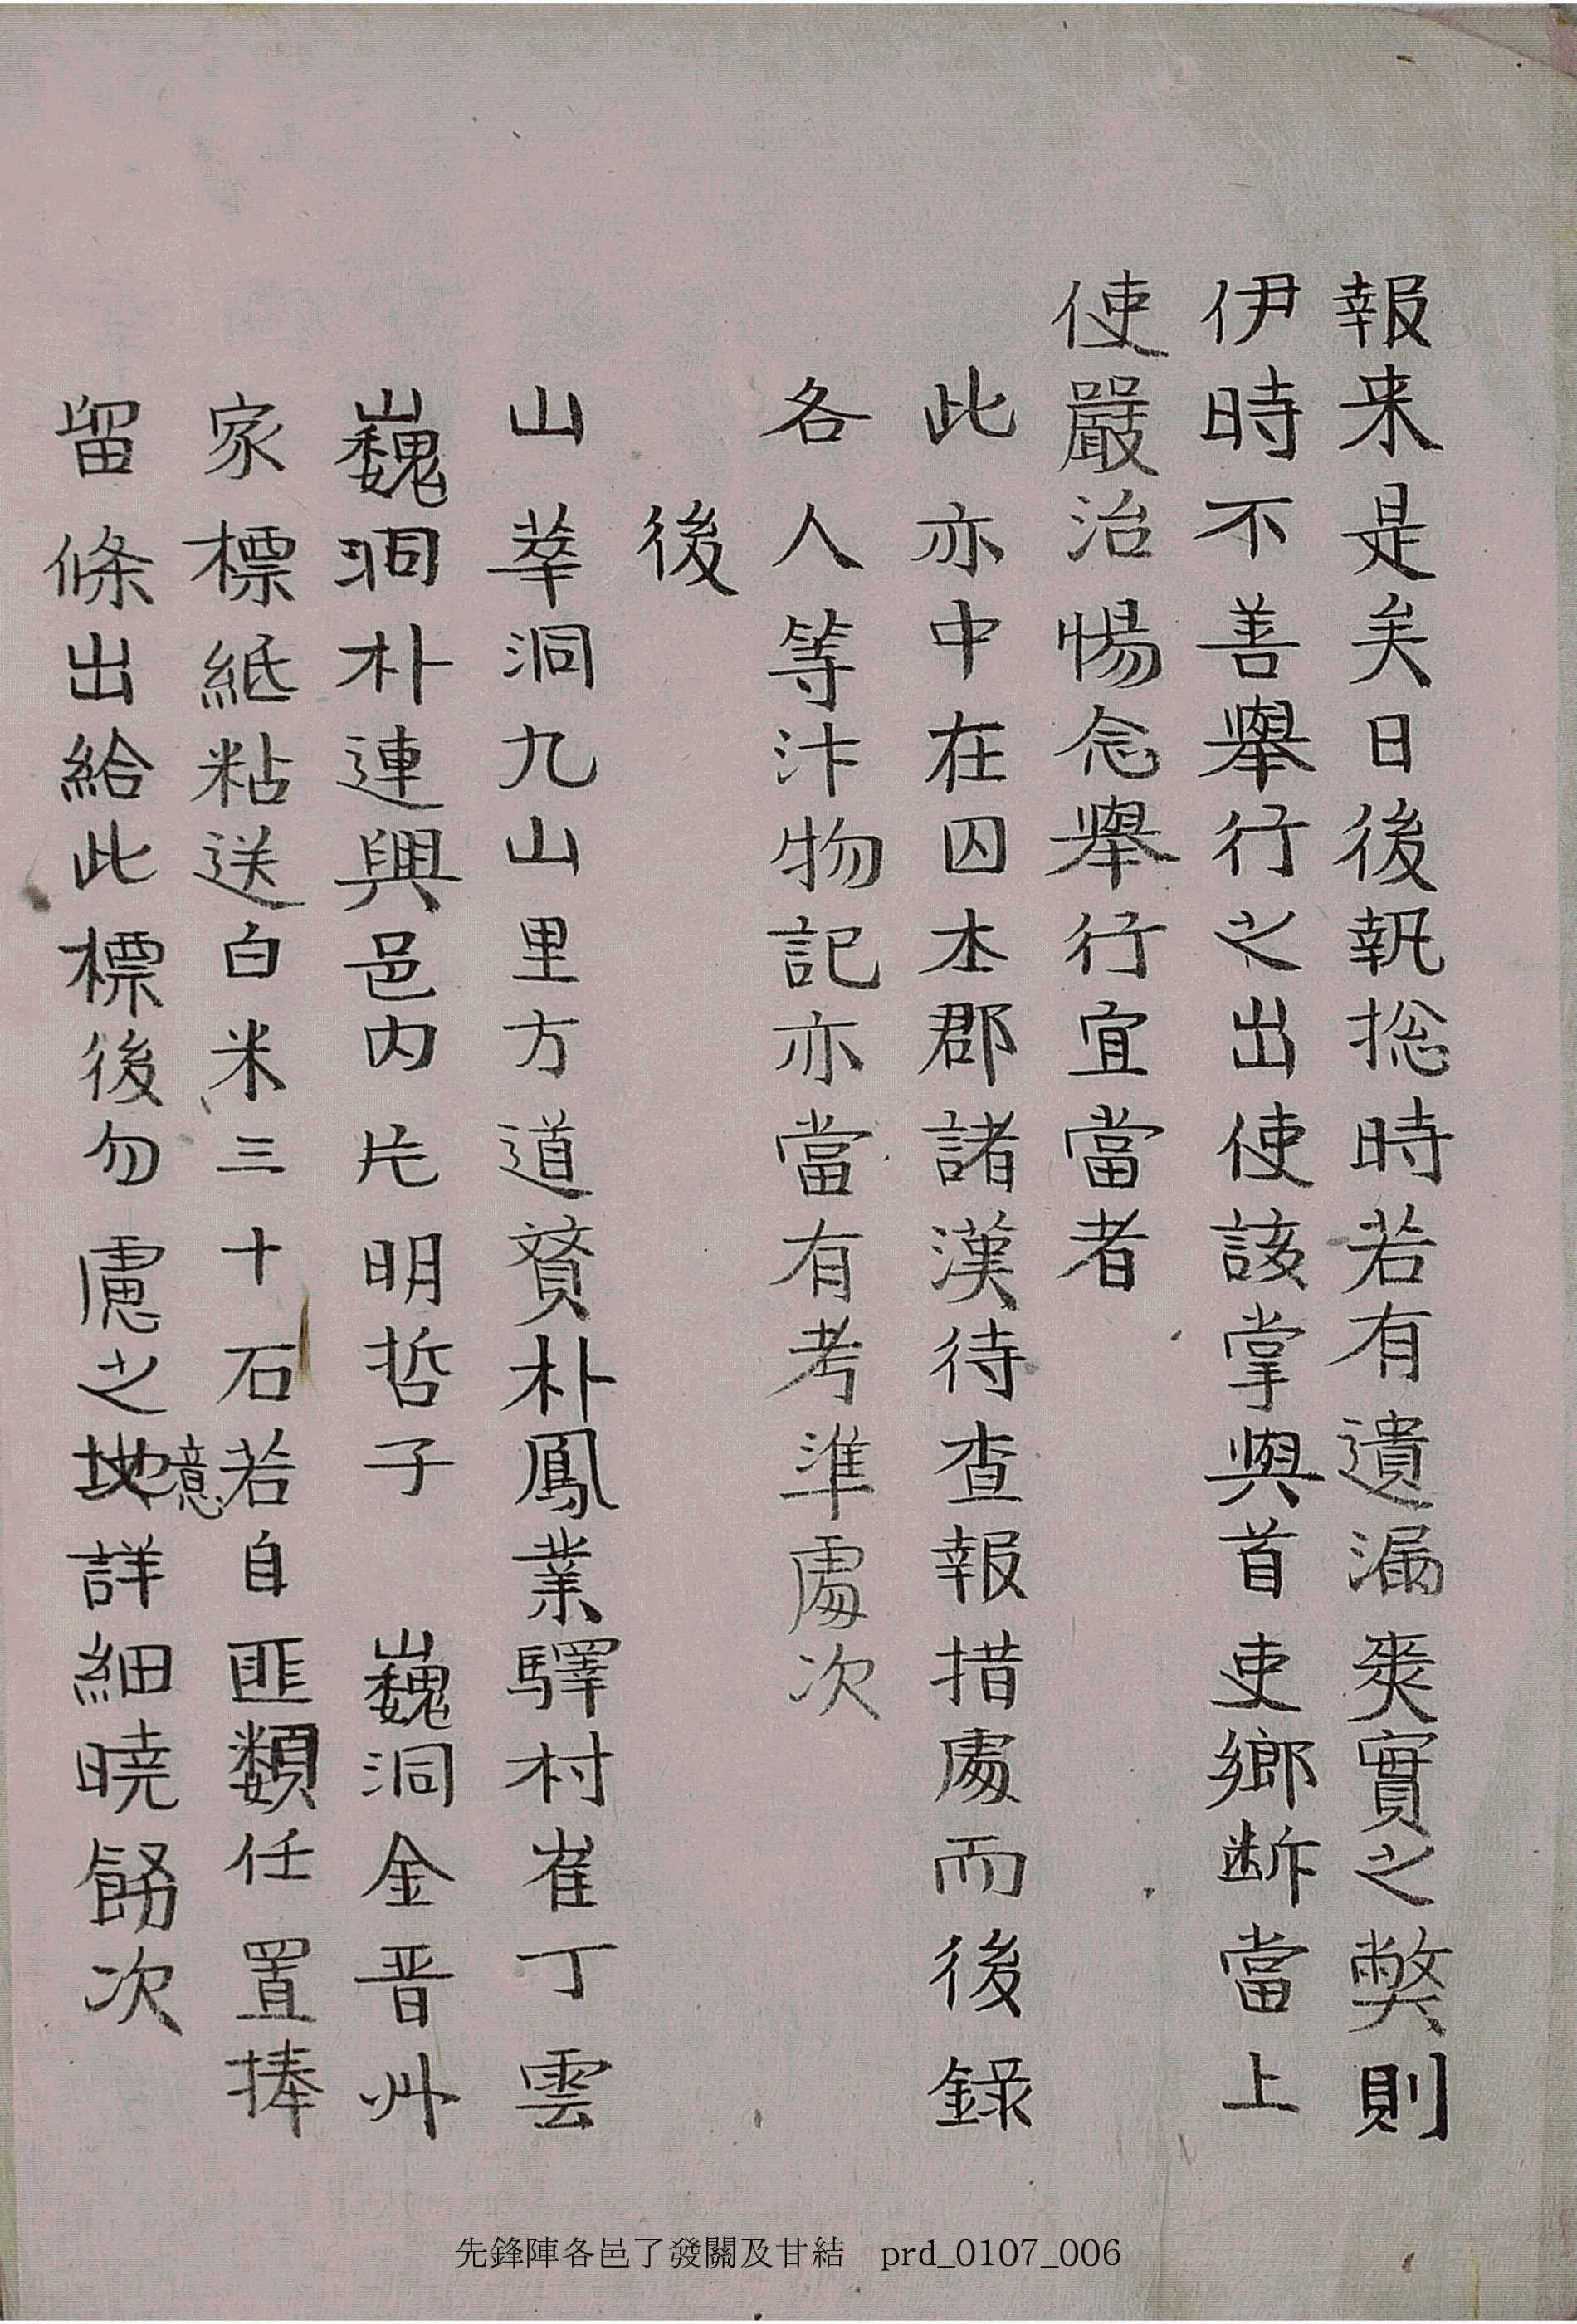 報来是矣日後執捴時若有遺漏爽實之弊則
伊時不善擧行之出使該掌與首吏鄉斷當上
使嚴治惕念擧行宜當者
此亦中在囚本郡諸漢待査報措處而後錄
各人等汴物記亦當有考準處次
後
山莘洞九山里方道贇朴鳳業驛村崔丁雲
巍洞朴連興邑內片明哲子 巍洞金晋州
家標紙粘送白米三十石若自匪類任置捧
留條出給此標後勿慮之地意詳細曉飭次
先鋒陣各邑了發關及甘結 prd_0107_006